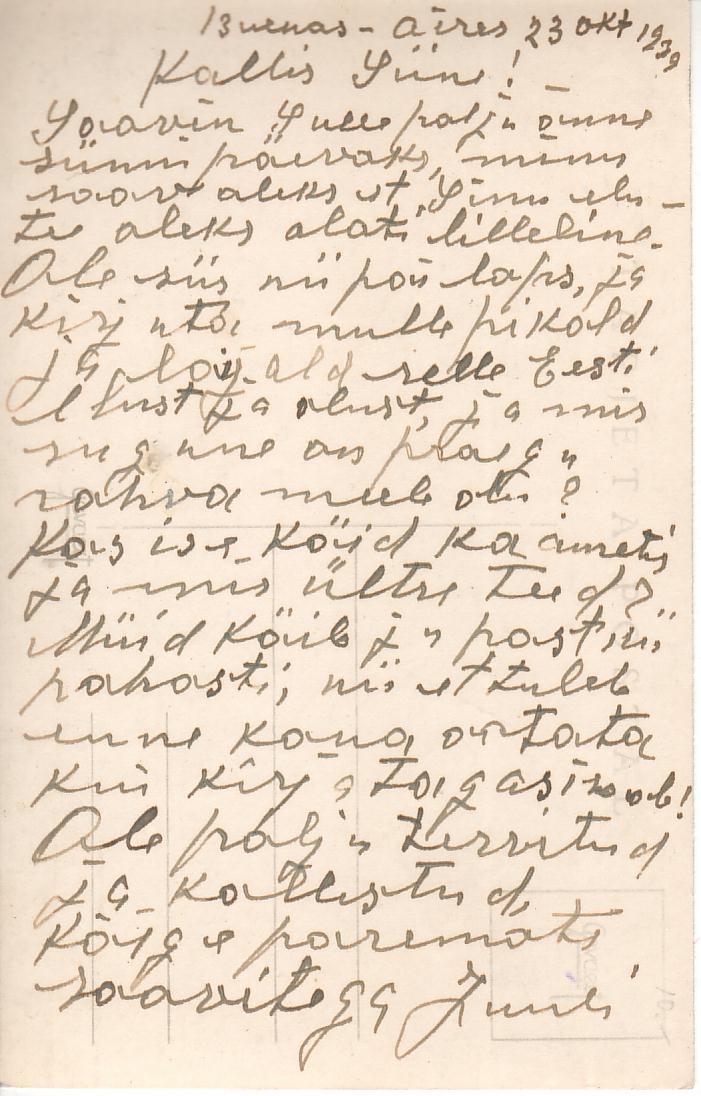 Buenas-Aires 23 okt 1939
Kallis Siine!
Soovin Sulle palju õnne
sünnipäevaks, minu
soov oleks et Sinu elu-
tee oleks alati lilleline.
Ole siis nii pai laps, ja
kirjuta mulle pikald
ja laijald selle Eesti
ilust ja olust, ja mis
sugune on praegu
rahva meeleolu?
Kas ise käid ka ametis
ja mis ültse teed?
Müid käib ju post nii
pahasti, nii et tuleb
enne kaua ootata
kui kirja tagasi saab!
Ole palju tervitud
ja kallistud,
Kõige paremate
soovitega Juuli